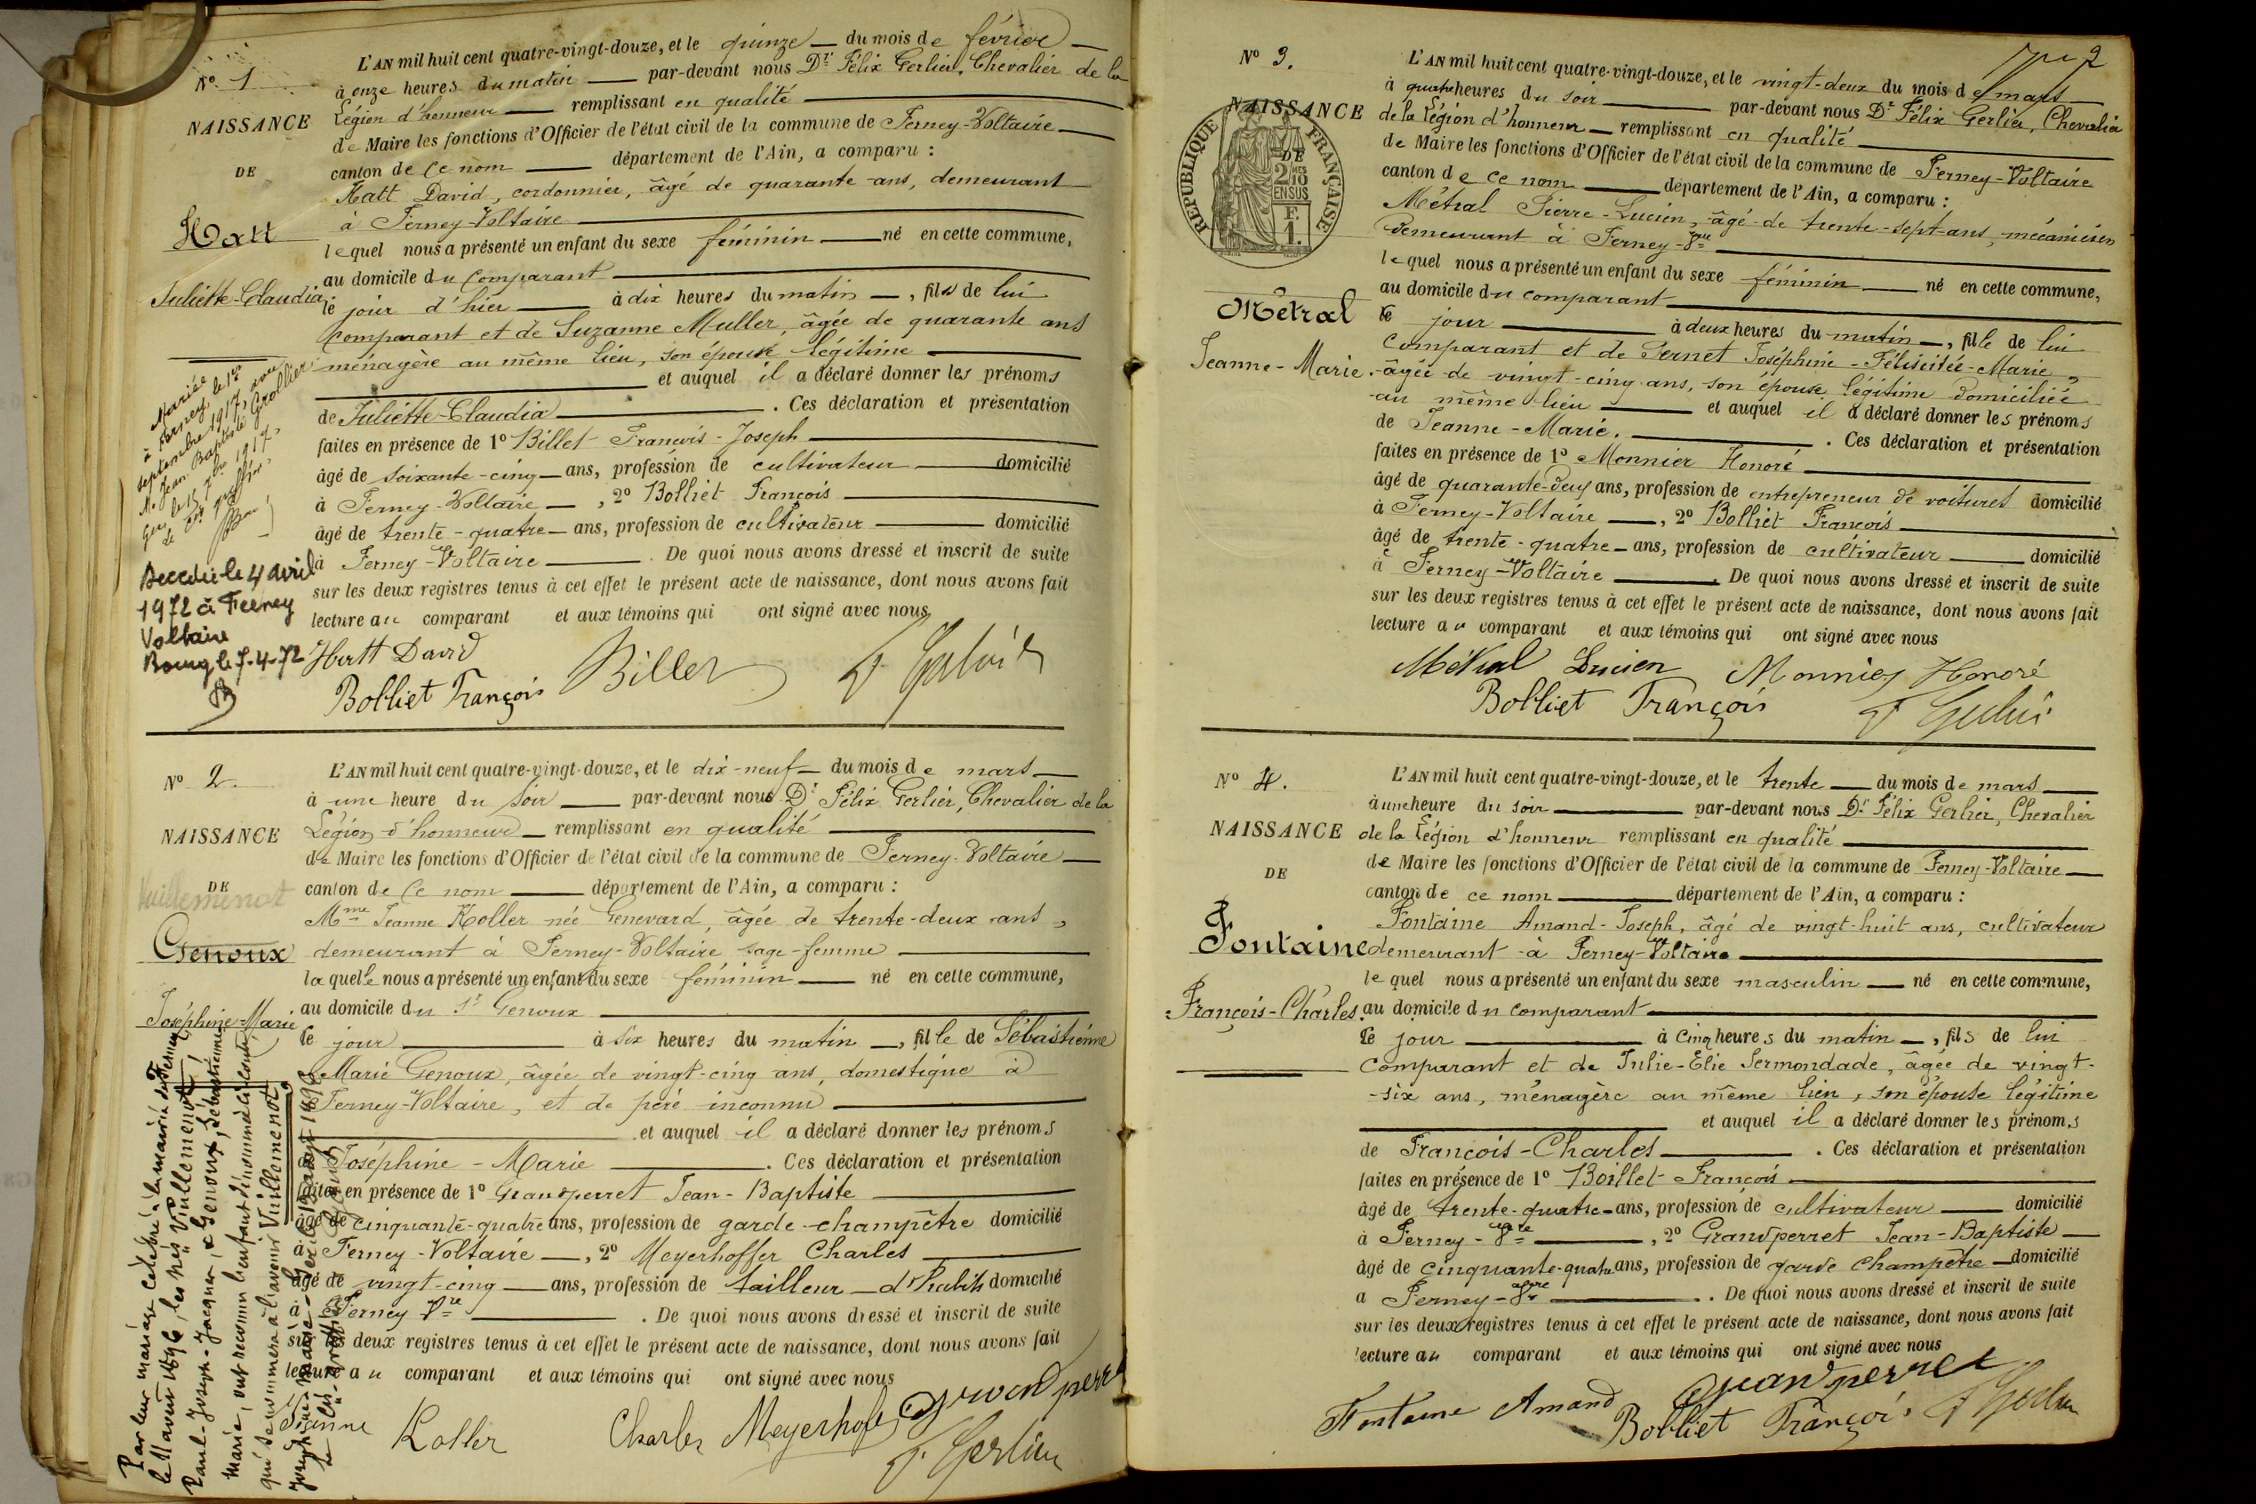 Nº 1
NAISSANCE
DE
Hatt
Juliette-Claudia
L'AN mil huit cent quatre-vingt-douze, et le quinze du mois de février
à onze heures du matin par-devant nous Dr Félix Gerlier, Chevalier de la
Légion d'honneur remplissant en qualité
de Maire les fonctions d'Officier de l'état civil de la commune de Ferney-Voltaire
canton de ce nom département de l'Ain, a comparu :
Hatt David, cordonnier, âgé de quarante ans, demeurant
à Ferney-Voltaire
lequel nous a présenté un enfant du sexe féminin né en cette commune,
au domicile du comparant
le jour d'hier à dix heures du matin, fille de lui
comparant et de Suzanne Muller, âgée de quarante ans
ménagère au même lieu, son épouse légitime
et auquel il a déclaré donner les prénoms
de Juliette-Claudia. Ces déclaration et présentation
faites en présence de 1º Billet François-Joseph
âgé de soixante-cinq ans, profession de cultivateur domicilié
à Ferney-Voltaire, 2º Bolliet François
âgé de trente-quatre ans, profession de cultivateur domicilié
à Ferney-Voltaire. De quoi nous avons dressé et inscrit de suite
sur les deux registres tenus à cet effet le présent acte de naissance, dont nous avons fait
lecture au comparant et aux témoins qui ont signé avec nous
Hatt David Billet F. Gerlier
Bolliet François
Mariée
à Ferney, le 1er
septembre 1917, avec
M. Jean Baptiste Grollier
Gex le 15 7bre 1917,
Décédée le 4 avril
1972 à Ferney
Voltaire
Bourg le 7-4-72
Nº 2.
NAISSANCE
DE
Vuillemenot
Genoux
Joséphine-Marie
L'AN mil huit cent quatre-vingt-douze, et le dix-neuf du mois de mars
à une heure du soir par-devant nous Dr Félix Gerlier, Chevalier de la
Légion d'honneur remplissant en qualité
de Maire les fonctions d'Officier de l'état civil de la commune de Ferney-Voltaire
canton de ce nom département de l'Ain, a comparu :
Mme Jeanne Koller née Genevard, âgée de trente-deux ans,
demeurant à Ferney-Voltaire sage-femme
laquelle nous a présenté un enfant du sexe féminin né en cette commune,
au domicile du Sr Genoux
le jour à six heures du matin, fille de Sébastienne
Marie Genoux, âgée de vingt-cinq ans, domestique à
Ferney-Voltaire, et de père inconnu
et auquel il a déclaré donner les prénoms
de Joséphine-Marie. Ces déclaration et présentation
faites en présence de 1º Grandperret Jean-Baptiste
âgé de cinquante-quatre ans, profession de garde-champêtre domicilié
à Ferney-Voltaire, 2º Meyerhoffer Charles
âgé de vingt-cinq ans, profession de tailleur d'habits domicilié
à Ferney Vre. De quoi nous avons dressé et inscrit de suite
sur les deux registres tenus à cet effet le présent acte de naissance, dont nous avons fait
lecture au comparant et aux témoins qui ont signé avec nous
Jeanne Koller Charles Meyerhofer Grandperret
F. Gerlier
Par leur mariage célébré à la mairie de Ferney
le 11 avril 1896, les nés Vuillemenot,
Paul-Joseph-Jacques, & Genoux, Sébastienne
Marie, ont reconnu l'enfant dénommé ci-contre,
qui se nommera à l'avenir Vuillemenot
Joséphine-Marie
Nº 3.
NAISSANCE
DE
RÉPUBLIQUE FRANÇAISE
Métral
Jeanne-Marie.
L'AN mil huit cent quatre-vingt-douze, et le vingt-deux du mois de mars
à quatre heures du soir par-devant nous Dr Félix Gerlier, Chevalier
de la Légion d'honneur remplissant en qualité
de Maire les fonctions d'Officier de l'état civil de la commune de Ferney-Voltaire
canton de ce nom département de l'Ain, a comparu :
Métral Pierre-Lucien, âgé de trente-sept-ans, mécanicien
demeurant à Ferney-Vre
lequel nous a présenté un enfant du sexe féminin né en cette commune,
au domicile du comparant
le jour à deux heures du matin, fille de lui
comparant et de Pernet Joséphine-Félicitée-Marie,
âgée de vingt-cinq ans, son épouse légitime domiciliée
au même lieu et auquel il a déclaré donner les prénoms
de Jeanne-Marie. Ces déclaration et présentation
faites en présence de 1º Monnier Honoré
âgé de quarante-deux ans, profession de entrepreneur de voitures domicilié
à Ferney-Voltaire, 2º Bolliet François
âgé de trente-quatre ans, profession de cultivateur domicilié
à Ferney-Voltaire. De quoi nous avons dressé et inscrit de suite
sur les deux registres tenus à cet effet le présent acte de naissance, dont nous avons fait
lecture au comparant et aux témoins qui ont signé avec nous
Métral Lucien Monnier Honoré
Bolliet François F. Gerlier
Nº 4.
NAISSANCE
DE
Fontaine
François-Charles.
L'AN mil huit cent quatre-vingt-douze, et le trente du mois de mars
à une heure du soir par-devant nous Dr Félix Gerlier, Chevalier
de la Légion d'honneur remplissant en qualité
de Maire les fonctions d'Officier de l'état civil de la commune de Ferney-Voltaire
canton de ce nom département de l'Ain, a comparu :
Fontaine Amand-Joseph, âgé de vingt-huit ans, cultivateur
demeurant à Ferney-Voltaire
lequel nous a présenté un enfant du sexe masculin né en cette commune,
au domicile du comparant
le jour à cinq heures du matin, fils de lui
comparant et de Julie-Elie Sermondade, âgée de vingt-
-six ans, ménagère au même lieu, son épouse légitime
et auquel il a déclaré donner les prénoms
de François-Charles. Ces déclaration et présentation
faites en présence de 1º Bolliet François
âgé de trente-quatre ans, profession de cultivateur domicilié
à Ferney-Vre, 2º Grandperret Jean-Baptiste
âgé de cinquante-quatre ans, profession de garde champêtre domicilié
à Ferney-Vre. De quoi nous avons dressé et inscrit de suite
sur les deux registres tenus à cet effet le présent acte de naissance, dont nous avons fait
lecture au comparant et aux témoins qui ont signé avec nous
Fontaine Amand Grandperret
Bolliet François F. Gerlier